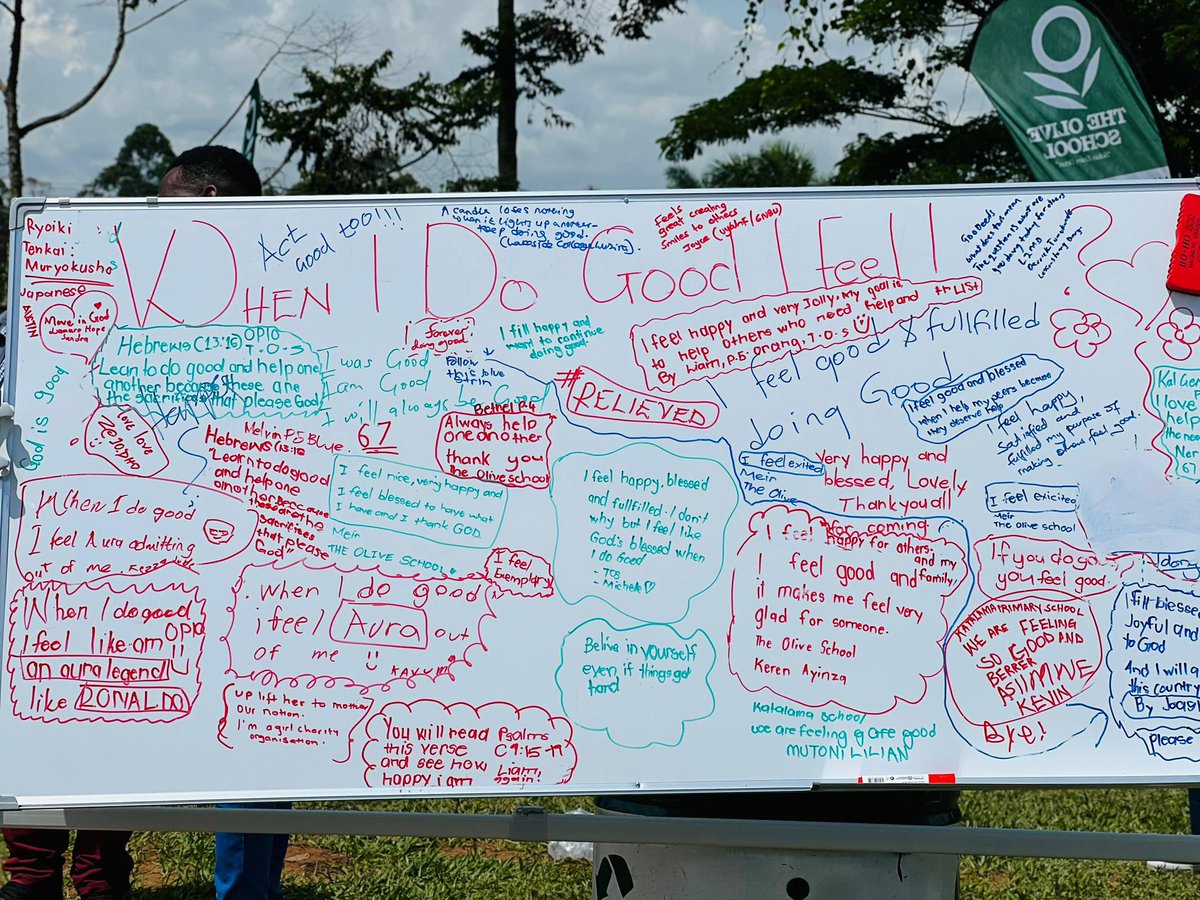 THE OLIVE
SCHOOL
Ryoiki
Tenkai:
Muryokusho
Japanese
AUSTIN
WHEN I Do GOOD I feel!
Act
Good too!!!
A candle loses nothing
when it lights up another
keep doing good.
Feels
great creating
smiles to others
Joyce
Good Deeds
Move in God
God is good
Hebrews (13:16) OPIO
T.O.S
Learn to do good and help one
another because these are
the sacrifices that please God
love love
I was Good
I am Good
I will always be Good
I forever
doing good
I fill happy and
want to continue
doing good.
Follow
this blue
I feel happy and very Jolly. My goal is
to help others who need help and
By Liam, P.5 orang. T.O.S
#RELIEVED
feel good & fullfilled
doing Good
I feel good and blessed
when I help my peers because
they deserve help
I feel happy,
Satisfied and
fulfilled my purpose of
making others feel good.
Melvin P.5 Blue
67
Hebrews (13:16
"Learn to do good
and help one
another because
these are the
sacrifices
that please
God"
Bethel P.4
Always help
one another
thank you
The Olive school
I feel nice, very happy and
I feel blessed to have what
I have and I thank GOD.
Meir
THE OLIVE SCHOOL
I feel
Exemplary
I feel happy, blessed
and fullfilled. I don't
why but I feel like
God's blessed when
I do Good
- TOS
- Michelle
I feel exited
Meir
The Olive
Very happy and
blessed, Lovely
Thank you all
for coming
I feel exicited
Meir
The Olive school
When I do good
I feel Aura admitting
out of me.
When I do good
I feel like am OPIO
an aura legend
like RONALDO
When I do good
i feel Aura out
of me
KAYUM
up lift her to mother
our nation.
I'm a girl charity
organisation.
You will read Psalms
this verse C 9:15-17
and see how Liam!
happy i am again!
Belive in yourself
even if things get
hard
I feel happy for others.
and my
family,
I feel good and
it makes me feel very
glad for someone.
The Olive School
Keren Ayinza
Katalama school
we are feeling g are good
MUTONI LILIAN
If you do go
you feel good.
KATALAMA PRIMARY SCHOOL
WE ARE FEELING
SO GOOD AND
BERRER
ASIIMWE
KEVIN
Bye!
I fill blessed
Joyful and
to God
And I will a
this country
By Joash
please
love
help
the nee
67